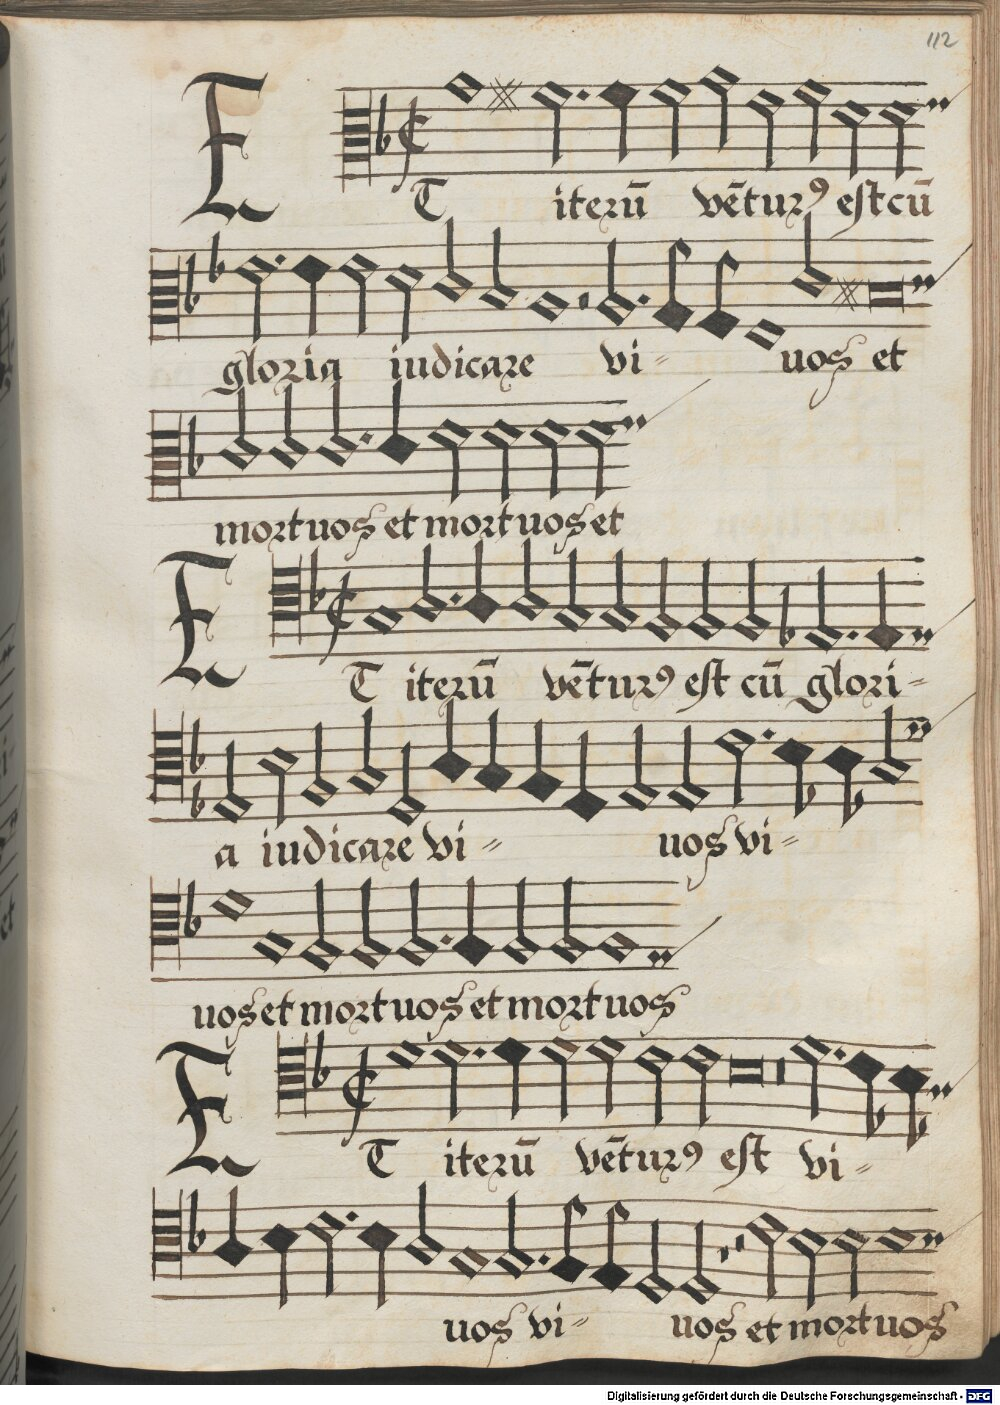 112
ET iterū vēturꝯ est cū
gloria iudicare vi= uos et
mortuos et mortuos et
ET iterū vēturꝯ est cū glori=
a iudicare vi= uos vi=
uos et mortuos et mortuos
ET iterū vēturꝯ est vi=
uos vi= uos et mortuos
Digitalisierung gefördert durch die Deutsche Forschungsgemeinschaft - DFG